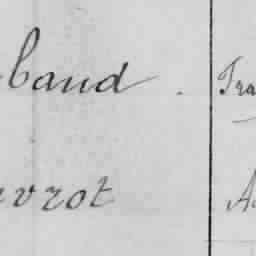 baud. Tra
vrot A